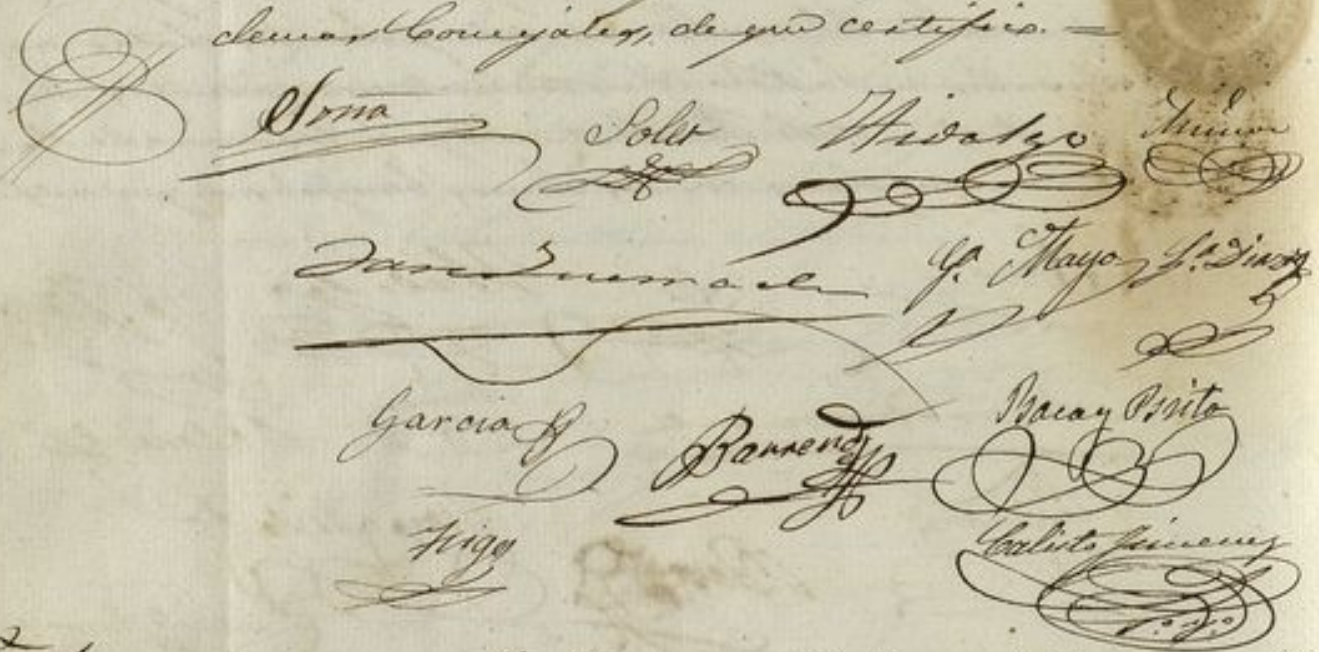 demas Concejales, de que certifico. =
Soler Hidalgo Muñoz
Juan Quemada F. Mayo
Garcia Barrend Baca y Brito
Trigo Calisto Jimenez